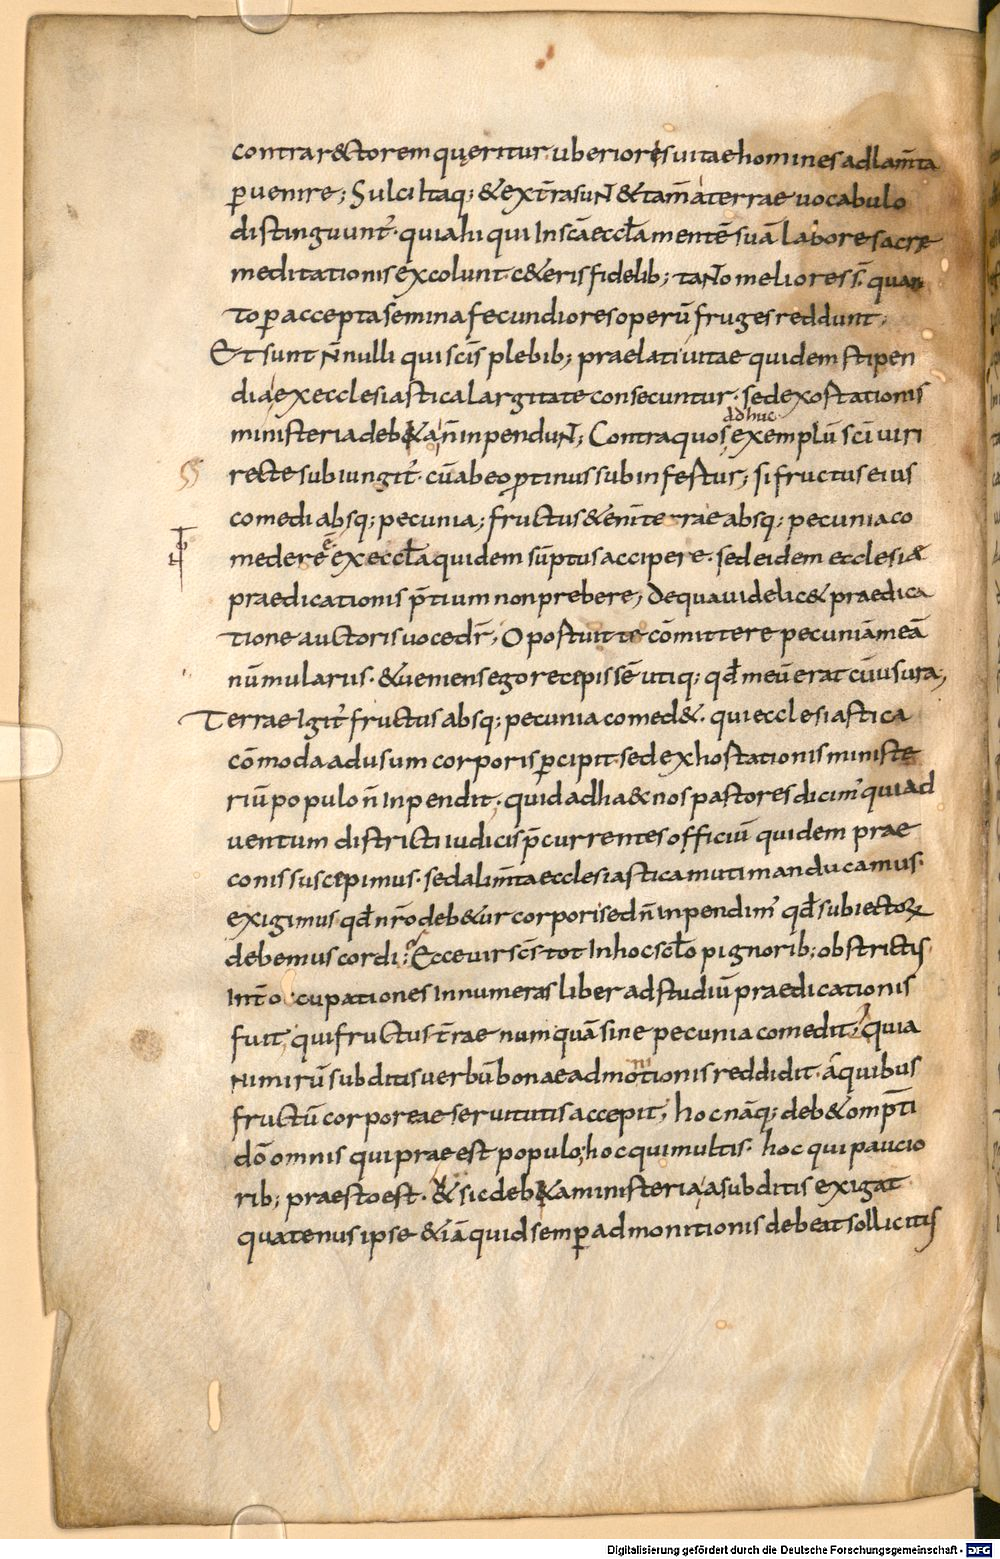 contrar&torem queritur uberioris uitae homines ad lam̄ta
ꝑuenire; Sulci Itaq; & ex t̄ra suN̄ & tam̄ a terrae uocabulo
distinguunt᷑· quia hi qui In sc̄a eccl̄a mentē suā labore sacre
meditationis excolunt c&eris fidelib; taN̄o meliores s̄· quan
to ꝑ accepta semina fecundiores operū fruges reddunt;
Et sunt N̄nulli qui sc̄is plebib; praelati uitae quidem stipen
dia ex ecclesiastica largitate consecuntur· sed exostationis
adhuc
ministeria deb&a n̄ inpenduN̄; Contra quos exemplū sc̄i uiri
recte subiungit᷑· cū ab eo ꝓtinus subinfertur; si fructus eius
comedi absq; pecunia; fructus &eni terrae absq; pecunia co
medere ē ex eccl̄a quidem sūptus accipere· sed eidem ecclesiae
praedicationis p̄tium non prebere; De qua uidelic& praedica
tione auctoris uoce dr̄; Oportuit te cōmittere pecuniā meā
nūmulariis· & ueniens ego recepissē utiq; qd̄ meū erat cū usura;
Terrae Igit᷑ fructus absq; pecunia comed&· qui ecclesiastica
cōmoda ad usum corporis ꝑcipit sed exhostationis ministe
riū populo n̄ Inpendit· quid ad ha& nos pastores dicim᷑ qui ad
uentum districti iudicis p̄currentes officiū quidem prae
conis suscepimus· sed alim̄ta ecclesiastica muti manducamus·
exigimus qd̄ nr̄o deb&ur corpori sed n̄ inpendim᷑ qd̄ subiectoꝝ
debemus cordi; Ecce uir sc̄s tot In hoc scl̄o pignorib; obstrictis
Int̄ occupationes Innumeras liber ad studiū praedicationis
fuit, qui fructus t̄rae numquā sine pecunia comedit; quia
ni
nimirū subditis uerbū bonae admotionis reddidit· a quibus
fructū corporeae seruitutis accepit; hoc nāq; deb& omp̄ti
dō omnis qui praeest populo; hoc qui multis· hoc qui paucio
rib; praesto est· & sic deb&a ministeria a subditis exigat
quatenus ipse & iā quid semꝑ admonitionis debeat sollicitis
Digitalisierung gefördert durch die Deutsche Forschungsgemeinschaft - DFG